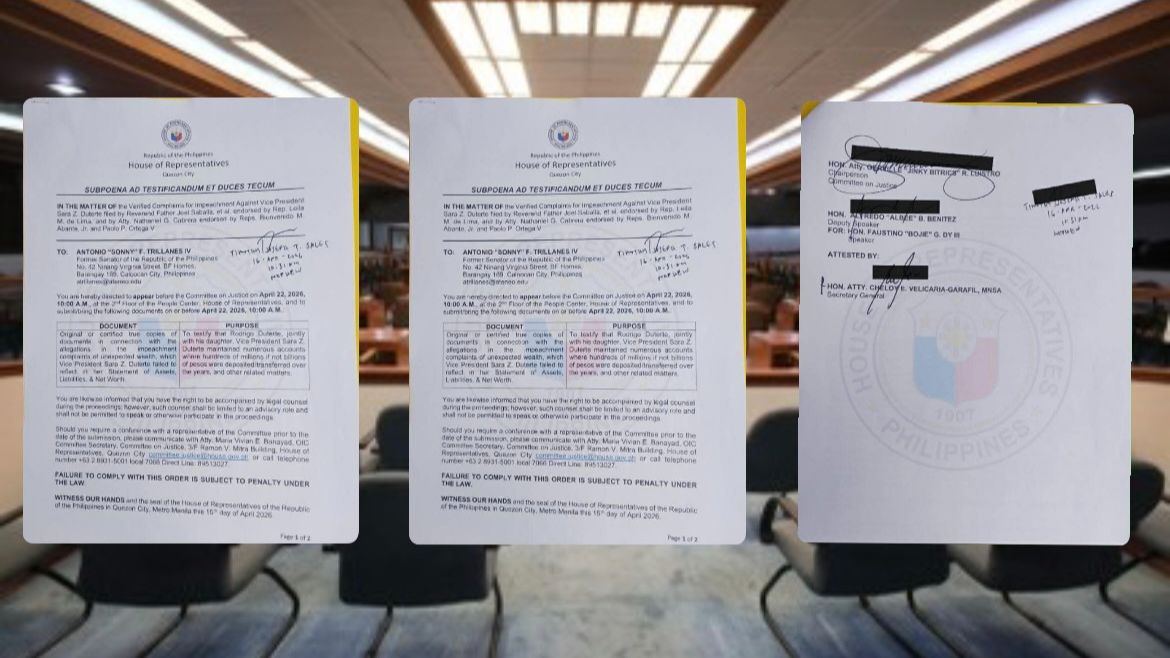 Republic of the Philippines
House of Representatives
Quezon City
SUBPOENA AD TESTIFICANDUM ET DUCES TECUM
IN THE MATTER OF the Verified Complaints for Impeachment Against Vice President
Sara Z. Duterte filed by Reverend Father Joel Saballa, et al. endorsed by Rep. Leila
M. de Lima, and by Atty. Nathaniel G. Cabrera endorsed by Reps. Bienvenido M.
Abante, Jr. and Paolo P. Ortega V
TO: ANTONIO "SONNY" F. TRILLANES IV
Former Senator of the Republic of the Philippines
No. 42 Ninang Virginia Street, BF Homes,
Barangay 169, Caloocan City, Philippines
atrillanes@ateneo.edu
16 - APR - 2026
10:31 AM
You are hereby directed to appear before the Committee on Justice on April 22, 2026,
10:00 A.M., at the 2nd Floor of the People Center, House of Representatives, and to
submit/bring the following documents on or before April 22, 2026, 10:00 A.M.
DOCUMENT PURPOSE
Original or certified true copies of documents in connection with the allegations in the impeachment complaints of unexpected wealth, which Vice President Sara Z. Duterte failed to reflect in her Statement of Assets, Liabilities, & Net Worth.
To testify that Rodrigo Duterte, jointly with his daughter, Vice President Sara Z. Duterte maintained numerous accounts where hundreds of millions if not billions of pesos were deposited/transferred over the years, and other related matters.
You are likewise informed that you have the right to be accompanied by legal counsel
during the proceedings; however, such counsel shall be limited to an advisory role and
shall not be permitted to speak or otherwise participate in the proceedings.
Should you require a conference with a representative of the Committee prior to the
date of the submission, please communicate with Atty. Maria Vivian E. Banayad, OIC
Committee Secretary, Committee on Justice, 3/F Ramon V. Mitra Building, House of
Representatives, Quezon City committee.justice@house.gov.ph or call telephone
number +63 2 8931-5001 local 7066 Direct Line: 89513027.
FAILURE TO COMPLY WITH THIS ORDER IS SUBJECT TO PENALTY UNDER
THE LAW.
WITNESS OUR HANDS and the seal of the House of Representatives of the Republic
of the Philippines in Quezon City, Metro Manila this 15th day of April 2026.
Page 1 of 2
Republic of the Philippines
House of Representatives
Quezon City
SUBPOENA AD TESTIFICANDUM ET DUCES TECUM
IN THE MATTER OF the Verified Complaints for Impeachment Against Vice President
Sara Z. Duterte filed by Reverend Father Joel Saballa, et al. endorsed by Rep. Leila
M. de Lima, and by Atty. Nathaniel G. Cabrera endorsed by Reps. Bienvenido M.
Abante, Jr. and Paolo P. Ortega V
TO: ANTONIO "SONNY" F. TRILLANES IV
Former Senator of the Republic of the Philippines
No. 42 Ninang Virginia Street, BF Homes,
Barangay 169, Caloocan City, Philippines
atrillanes@ateneo.edu
16 - APR - 2026
10:31 AM
You are hereby directed to appear before the Committee on Justice on April 22, 2026,
10:00 A.M., at the 2nd Floor of the People Center, House of Representatives, and to
submit/bring the following documents on or before April 22, 2026, 10:00 A.M.
DOCUMENT PURPOSE
Original or certified true copies of documents in connection with the allegations in the impeachment complaints of unexpected wealth, which Vice President Sara Z. Duterte failed to reflect in her Statement of Assets, Liabilities, & Net Worth.
To testify that Rodrigo Duterte, jointly with his daughter, Vice President Sara Z. Duterte maintained numerous accounts where hundreds of millions if not billions of pesos were deposited/transferred over the years, and other related matters.
You are likewise informed that you have the right to be accompanied by legal counsel
during the proceedings; however, such counsel shall be limited to an advisory role and
shall not be permitted to speak or otherwise participate in the proceedings.
Should you require a conference with a representative of the Committee prior to the
date of the submission, please communicate with Atty. Maria Vivian E. Banayad, OIC
Committee Secretary, Committee on Justice, 3/F Ramon V. Mitra Building, House of
Representatives, Quezon City committee.justice@house.gov.ph or call telephone
number +63 2 8931-5001 local 7066 Direct Line: 89513027.
FAILURE TO COMPLY WITH THIS ORDER IS SUBJECT TO PENALTY UNDER
THE LAW.
WITNESS OUR HANDS and the seal of the House of Representatives of the Republic
of the Philippines in Quezon City, Metro Manila this 15th day of April 2026.
Page 1 of 2
HON. Atty. "JINKY BITRICS" R. LUISTRO
Chairperson
Committee on Justice
16 - APR - 2026
10:31 AM
HON. ALFREDO "ALBEE" B. BENITEZ
Deputy Speaker
FOR: HON. FAUSTINO "BOJIE" G. DY III
Speaker
ATTESTED BY:
HON. ATTY. CHELOY E. VELICARIA-GARAFIL, MNSA
Secretary General
1907
PHILIPPINES